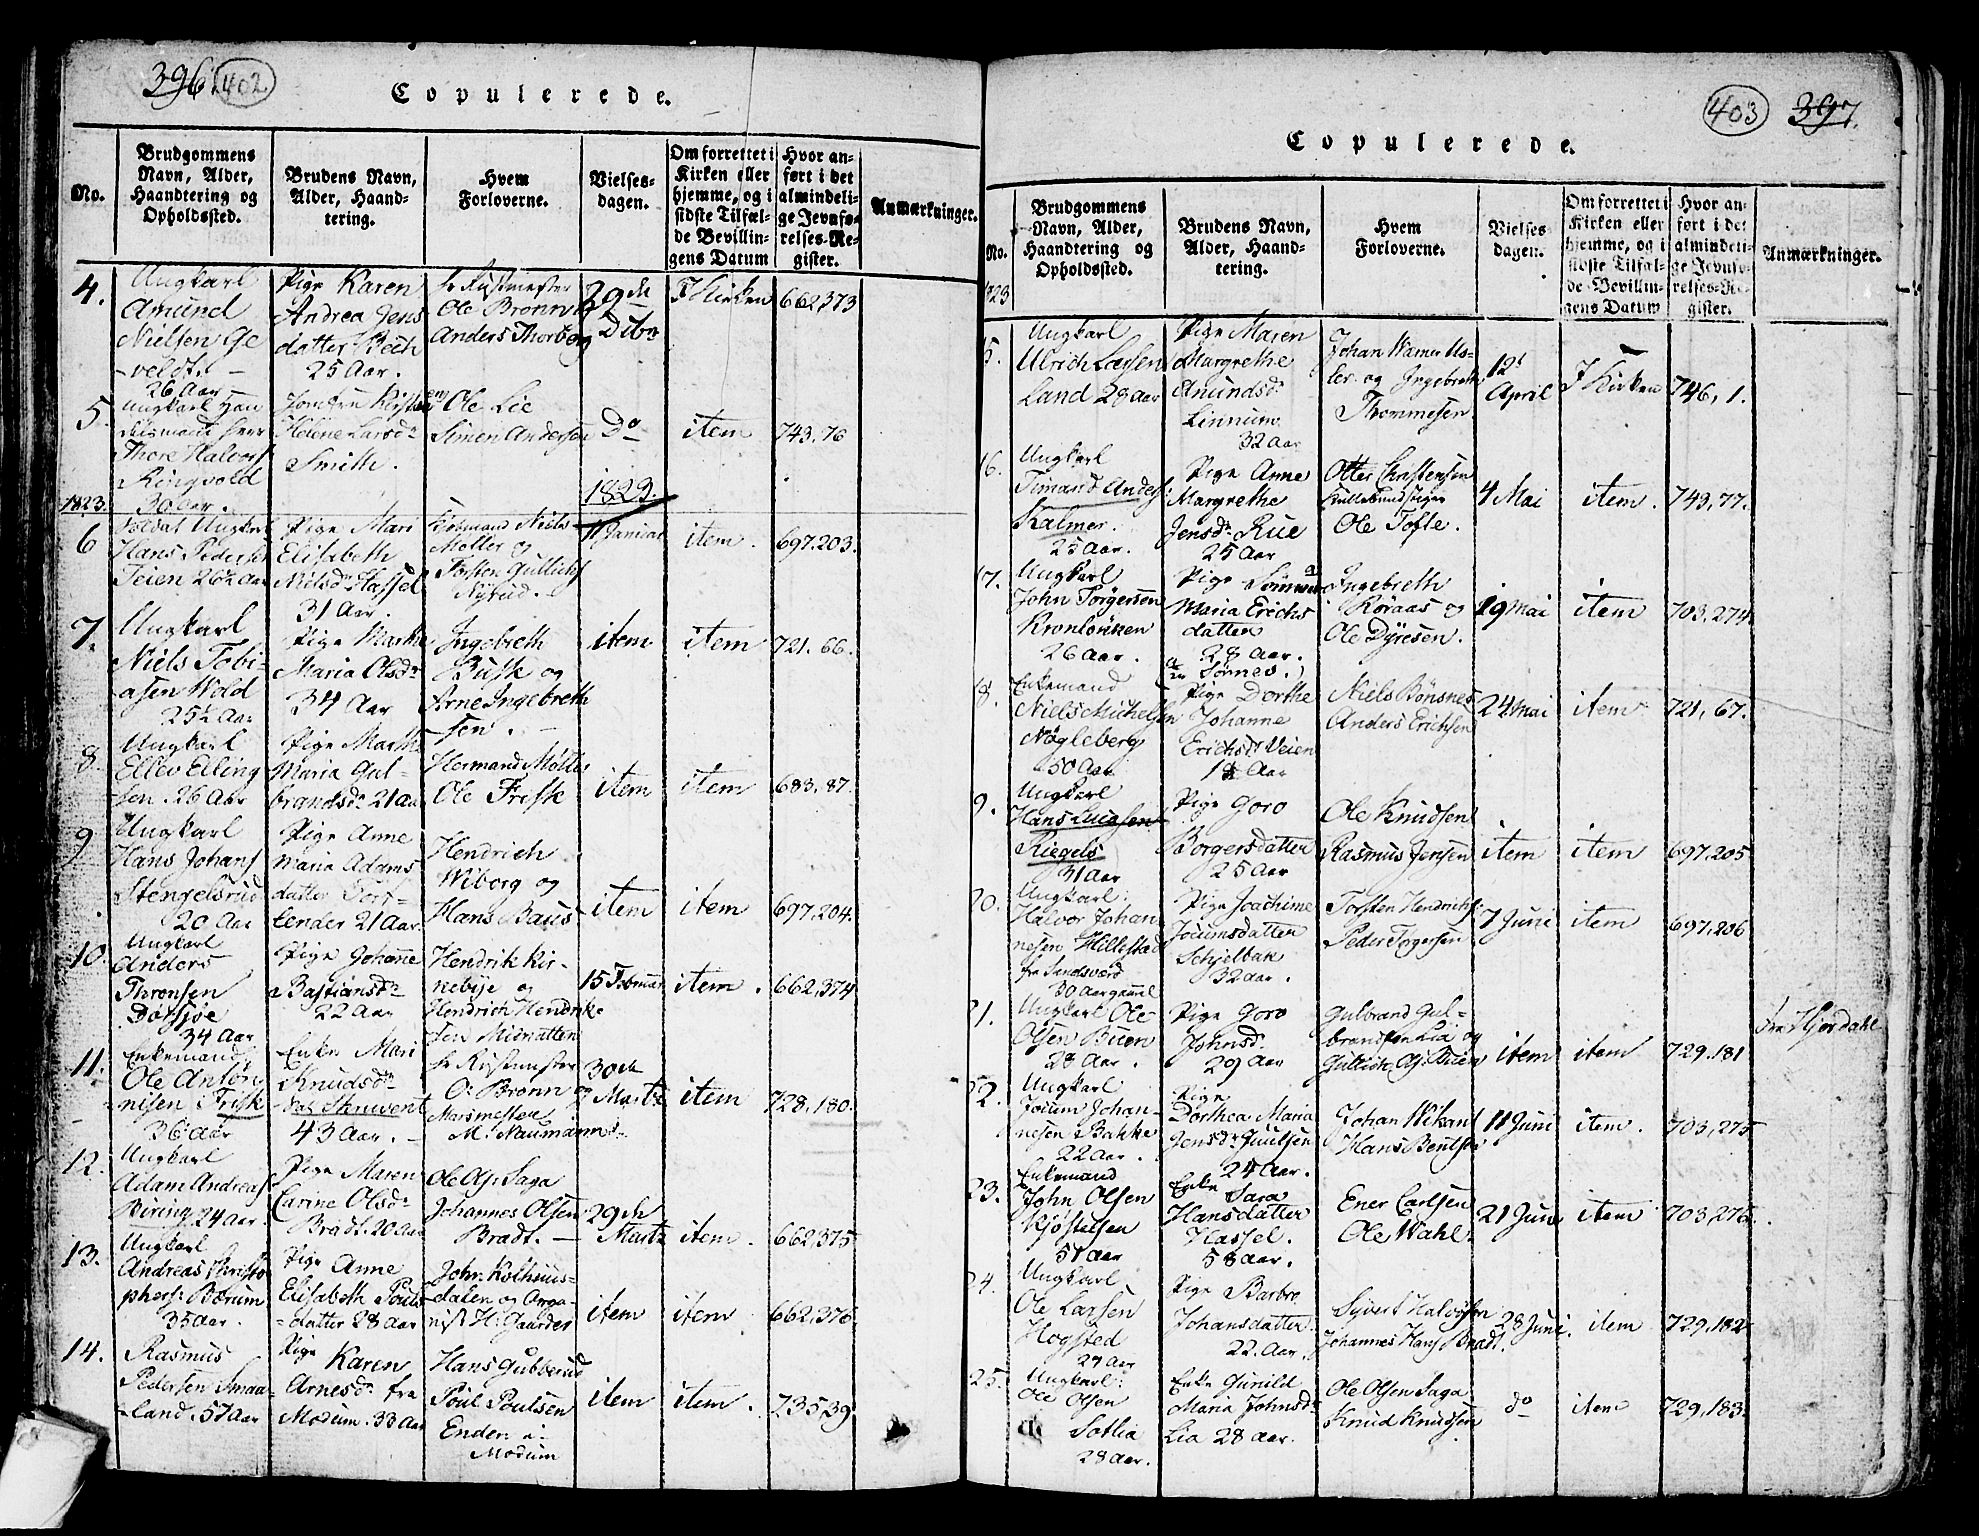 396. 402
Copulerede.
No.
Brudgommens Navn, Alder, Haandtering og Opholdssted.
Brudens Navn, Alder, Haandtering.
Hvem Forloverne.
Vielsesdagen.
Om forrettet i Kirken eller hjemme, og i sidste Tilfælde Bevillingens Datum
Hvor anført i det almindelige Jevnførelses-Register.
Anmærkninger.
4.
Ungkarl
Amund
Nielsen Ge
veldt.
26 Aar
Pige Karen
Andrea Jens
datter Bech
25 Aar.
Ole Bronn
Anders Thorberg
29de
Dcbr
I Kirken
662,373
5.
Thore Halvors
Ringvold
30 Aar.
Jomfru Kirsten
Helene Larsdr
Smith.
Ole Lie
Simen Andersen
Do
item
743,76
1823.
1823.
6
Soldat Ungkarl
Hans Peders
Teien 26½ aar
Pige Mari
Elisabeth
Nielsdr Hassel
31 Aar
Kjøbmand Niels
Møller og
Torsten Gullichs
Nyrud.
11 Januar
item.
697,203.
7.
Ungkarl
Niels Tobi-
asen Wold
25½ Aar
Pige Marthe
Maria Olsdr
34 Aar
Ingebreth
Busk og
Arne Ingebreth
sen.
item
item
721. 66.
8.
Ungkarl
Ellev Elling
sen. 26 Aar
Pige Marthe
Maria Gul-
brandsdr 21 aar
Hermand Møller
Ole Frisk
item
item
683,87.
9
Ungkarl
Hans Johans
Stengelsrud
20 Aar
Pige Anne
Maria Adams
datter Torf-
tender 21 Aar.
Hendrich
Wiborg og
Hans Baus
item
item
697,204.
10.
Ungkarl
Anders
Thronsen
Dørsjøe
34 Aar
Pige Johanne
Bastiansdr
22 Aar
Hendrik Kir-
nebye og
Hendrich Hendrik-
sen Midnatten
15 Februar
item.
662,374
11.
Enkemand
Ole Antøn
nisen Frisk
36 aar
Enke Mari
Knudsdr
43 Aar.
O. Bronn og
M. Naumann
30de
Martz
item
728,180.
12.
Ungkarl
Adam Andreas
Biring 24 aar.
Pige Maren
Carine Olsdr
Bradt. 20 Aar
Ole Ajs. Saga
Johannes Olsen
Bradt.
29de
Martz
item.
662,375
13.
Ungkarl
Andreas Christo
phers. Borum
35 aar.
Pige Anne
Elisabeth Pouls
datter 28 aar
John Kolhuus-
dalen og Orga-
nist H. Gaarder
item
item
662,376
14.
Rasmus
Pedersen Smaa-
land. 57 Aar
Pige
Karen
Arnesdr fra
Modum. 33 Aar
Hans Gubberud
Poul Poulsen
Enden i
Modum
item
item.
735,39
403 397.
Copulerede.
No.
Brudgommens Navn, Alder, Haandtering og Opholdssted.
Brudens Navn, Alder, Haandtering.
Hvem Forloverne.
Vielsesdagen.
Om forrettet i Kirken eller hjemme, og i sidste Tilfælde Bevillingens Datum
Hvor anført i det almindelige Jevnførelses-Register.
Anmærkninger.
1823
15.
Ungkarl
Ulrich Larsen
Land 28 aar
Pige Maren
Margrethe
Amundsdr
Linnum
32 Aar
Johan Warner Us-
ler og Ingebreth
Thommesen
12te
April
I Kirken
746, 1.
16.
Ungkarl
Timand Anders.
Kalmer.
25 Aar.
Pige Anne
Margrethe
Jensdr Rue
25 Aar
Otter Christensen
Ole Tofte.
4 Mai
item.
743,77.
17.
Ungkarl
John Torgersen
Kronlønnen
26 Aar.
Maria Erichs
datter
28 aar.
Sørnes.
Ingebreth
Røraas og
Ole Dyresen.
19 Mai
item
703,274
18.
Enkemand
Niels Michelsen
Nøgleberg
50 Aar
Pige Dorthe
Johanne
Erichsdr Veien
Niels Bønsnes
Anders Erichsen
24 Mai
item.
721, 67.
9.
Ungkarl
Hans Lucasen
Riegels
31 Aar
Pige Goro
Borgersdatter
25 Aar
Ole Knudsen
Rasmus Jensen
item
item
697,205
20.
Ungkarl.
Halvor Johan-
nesen Hillestad
fra Sandsværd
30 Aar gammel
Pige Joachime
Jocumsdatter
Schjelbak
32 aar.
Torsten Hendrichs.
Peder Torgersen
7 Juni
item
697,206
21.
Ungkarl Ole
Olsen Buen
28 Aar.
Pige Goro
Johnsd.
29 Aar
Gulbrand Gul-
brandsen Lia og
Gullich Ajs. Buen
item
item
729.181
fra Hjerdahl
22.
Ungkarl
Jocum Johan-
nesen Bakke
22 Aar.
Pige
Dorthea Maria
Jensdr Juulsen
24 Aar.
Johan Wikand
Hans Bentsen
11 Juni
item.
703,275
23.
Enkemand
John Olsen
Kjøstelsen
51 aar
Enke Sara
Hansdatter
Hassel.
58 aar.
Ener Carlsen
Ole Wahl.
21 Juni
item
703,276.
24.
Ungkarl.
Ole Larsen
Hogsted
27 Aar
Pige Barbro
Johansdatter.
22 Aar.
Syvert Halvorsen
Johannes Hans. Bradt.
28 Juni.
item
729,182
25.
Ungkarl.
Ole Olsen
Sotlia
28 Aar.
Enke Gunild
Maria Johnsdr
Lia 28 aar.
Ole Olsen Saga
Knud Knudsen
do
item
729,183.